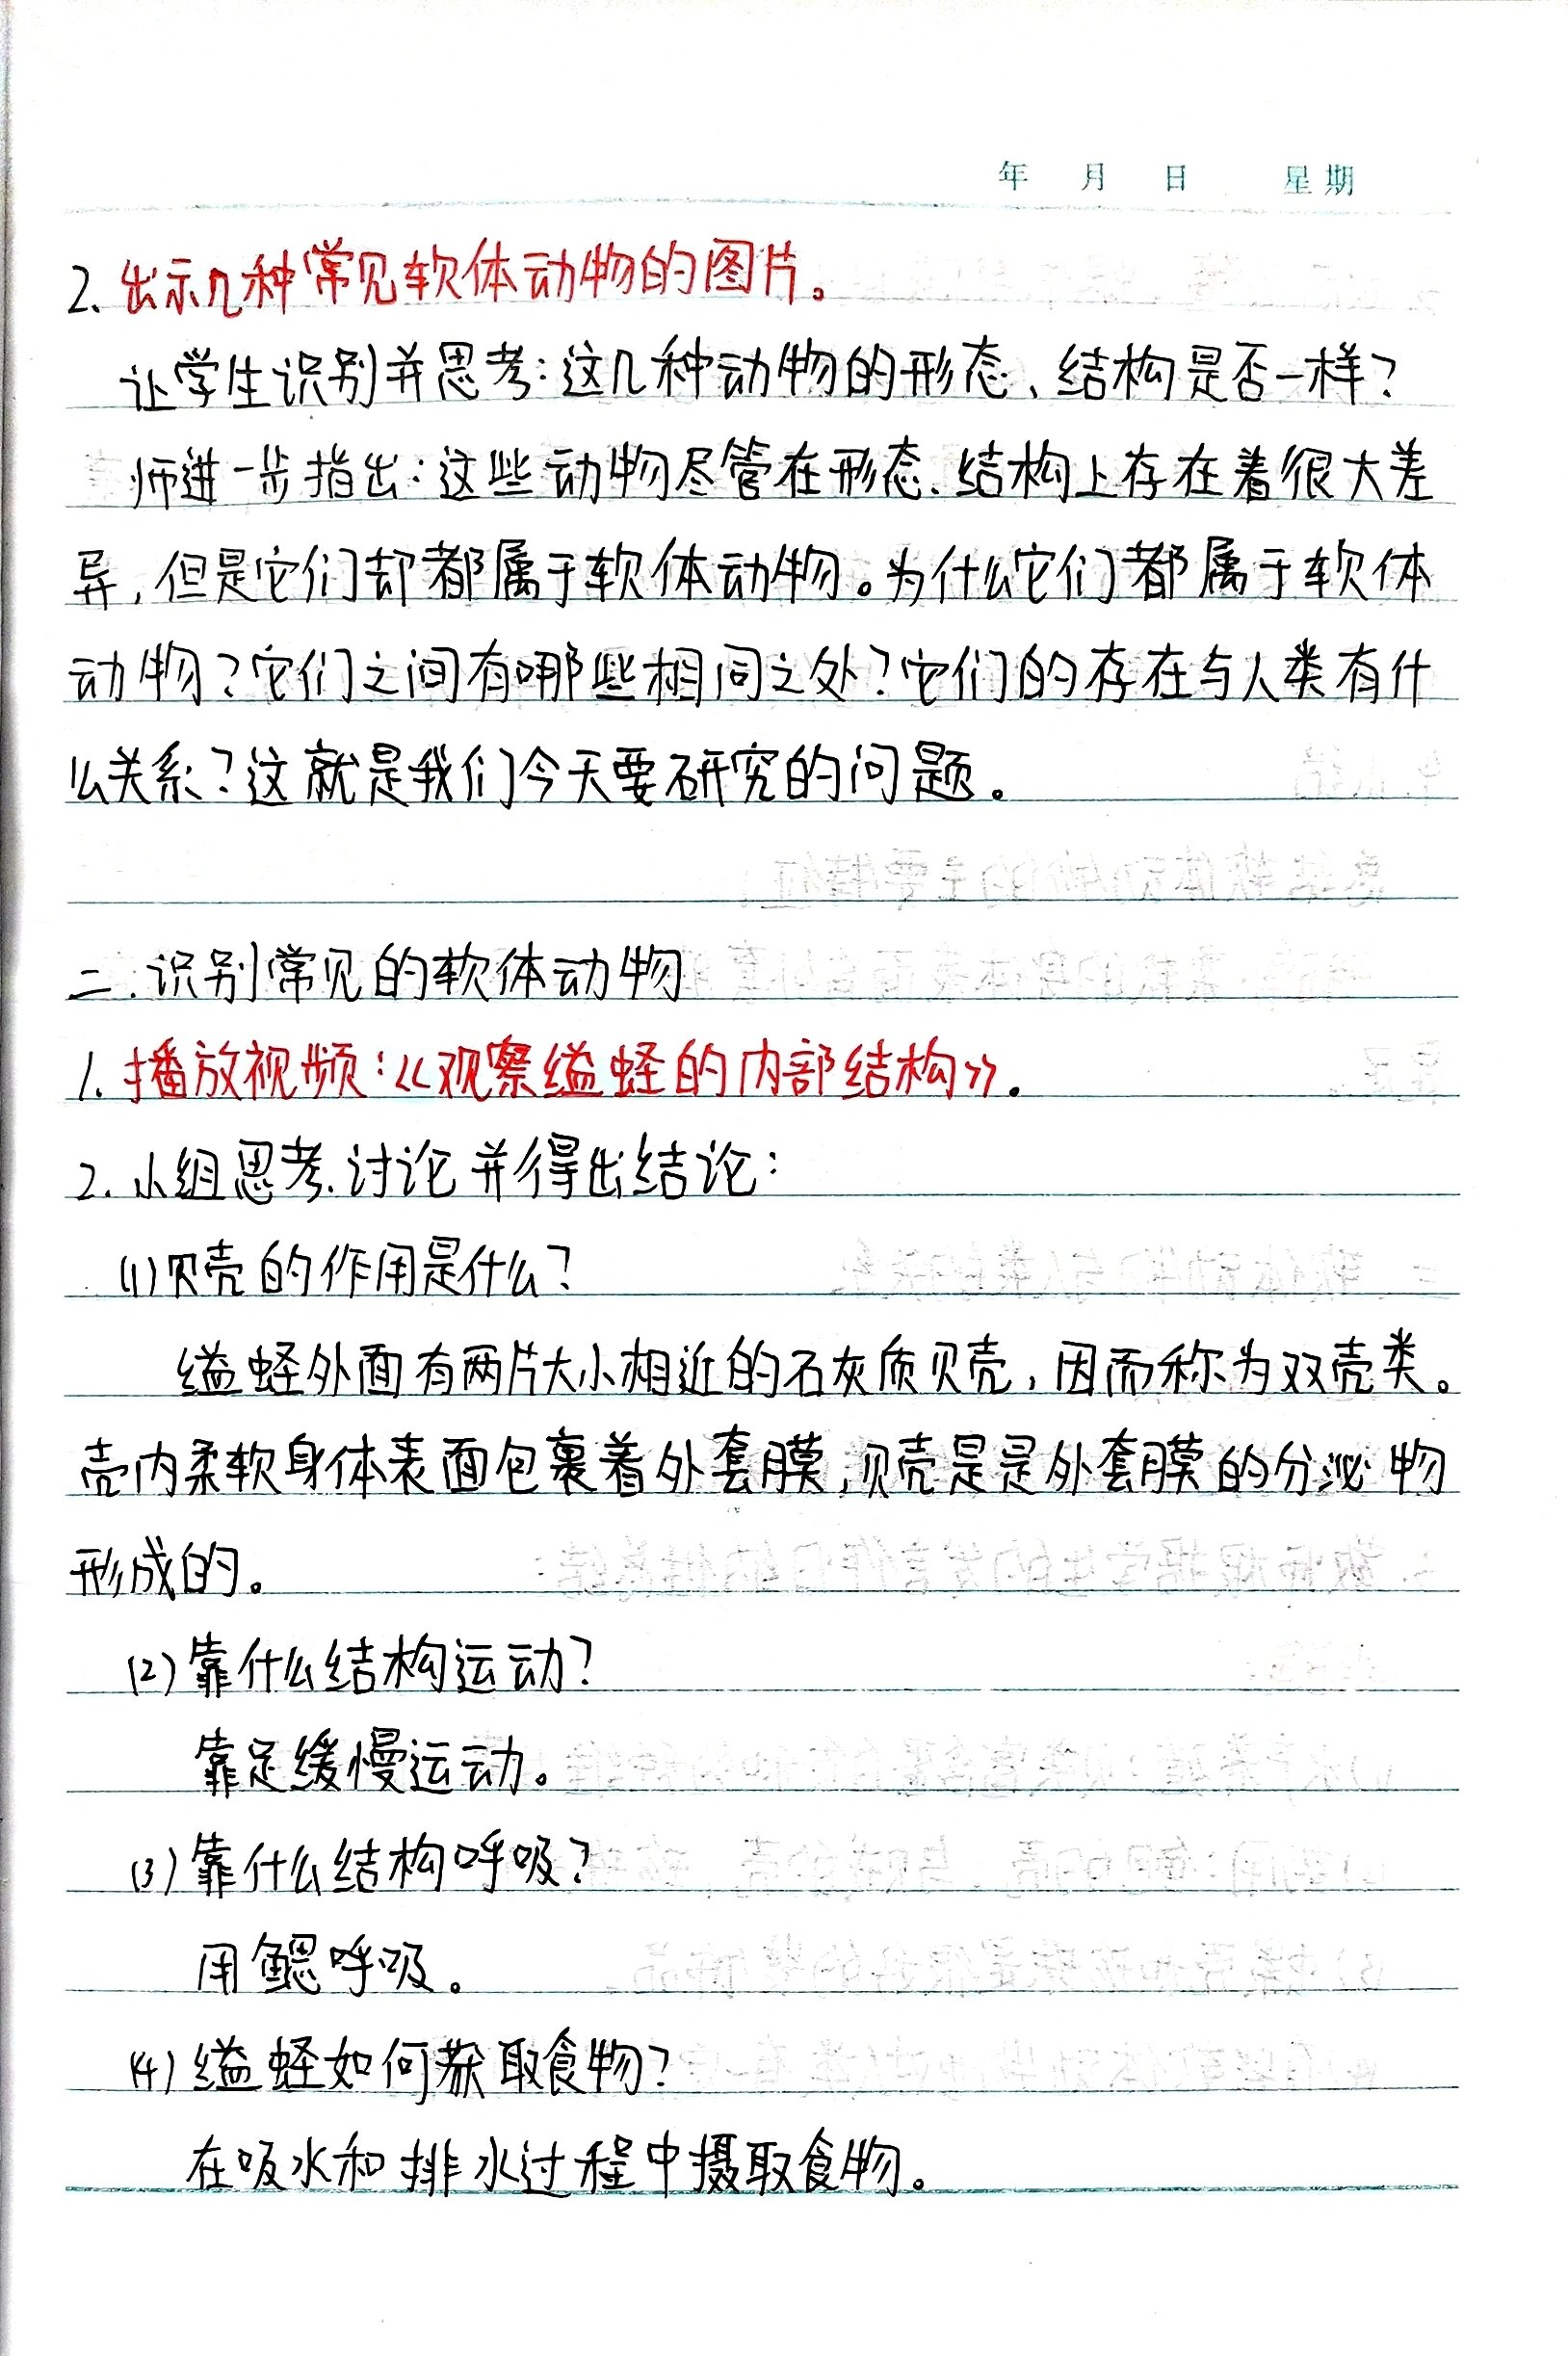 年 月 日 星期
2. 出示几种常见软体动物的图片。
让学生识别并思考:这几种动物的形态、结构是否一样?
师进一步指出:这些动物尽管在形态、结构上存在着很大差
异,但是它们却都属于软体动物。为什么它们都属于软体
动物?它们之间有哪些相同之处?它们的存在与人类有什
么关系?这就是我们今天要研究的问题。
二.识别常见的软体动物
1. 播放视频:《观察缢蛏的内部结构》.
2. 小组思考、讨论并得出结论:
(1)贝壳的作用是什么?
缢蛏外面有两片大小相近的石灰质贝壳,因而称为双壳类。
壳内柔软身体表面包裹着外套膜,贝壳是是外套膜的分泌物
形成的。
(2)靠什么结构运动?
靠足缓慢运动。
(3)靠什么结构呼吸?
用鳃呼吸。
(4)缢蛏如何获取食物?
在吸水和排水过程中摄取食物。